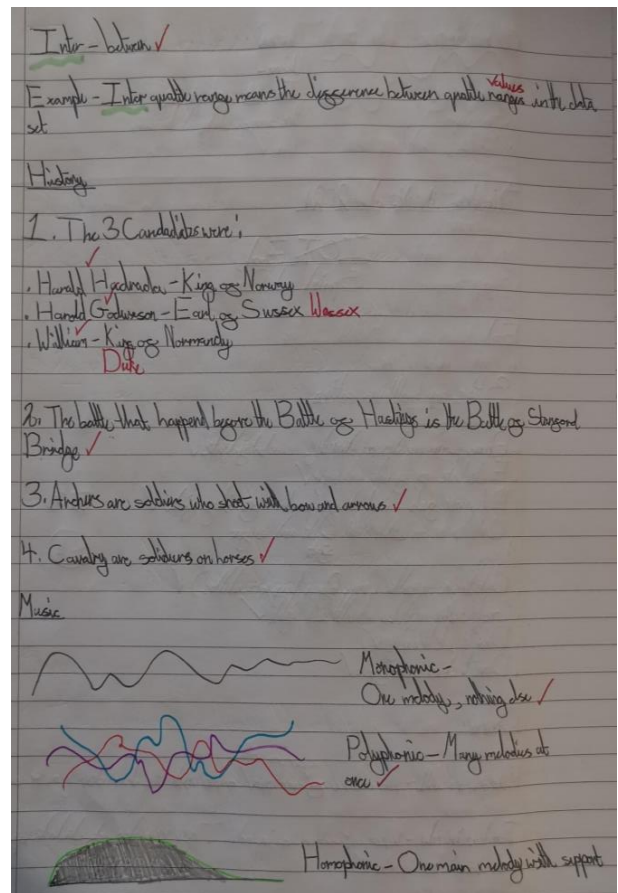 Inter - between ✓
values
Example - Inter quatile range means the difference between quatile ranges in the data
set
History
1. The 3 Candadites were:
. Harald Hadrada - King of Norway
. Harold Godwinson - Earl of Sussex Wessex
. William - King of Normandy
Duke
2. The battle that happend before the Battle of Hastings is the Battle of Stanford
Bridge ✓
3. Archers are soldiers who shoot with bow and arrows ✓
4. Cavalry are soldiers on horses ✓
Music
Monophonic -
One melody, nothing else ✓
Polyphonic - Many melodies at
once ✓
Homophonic - One main melody with support